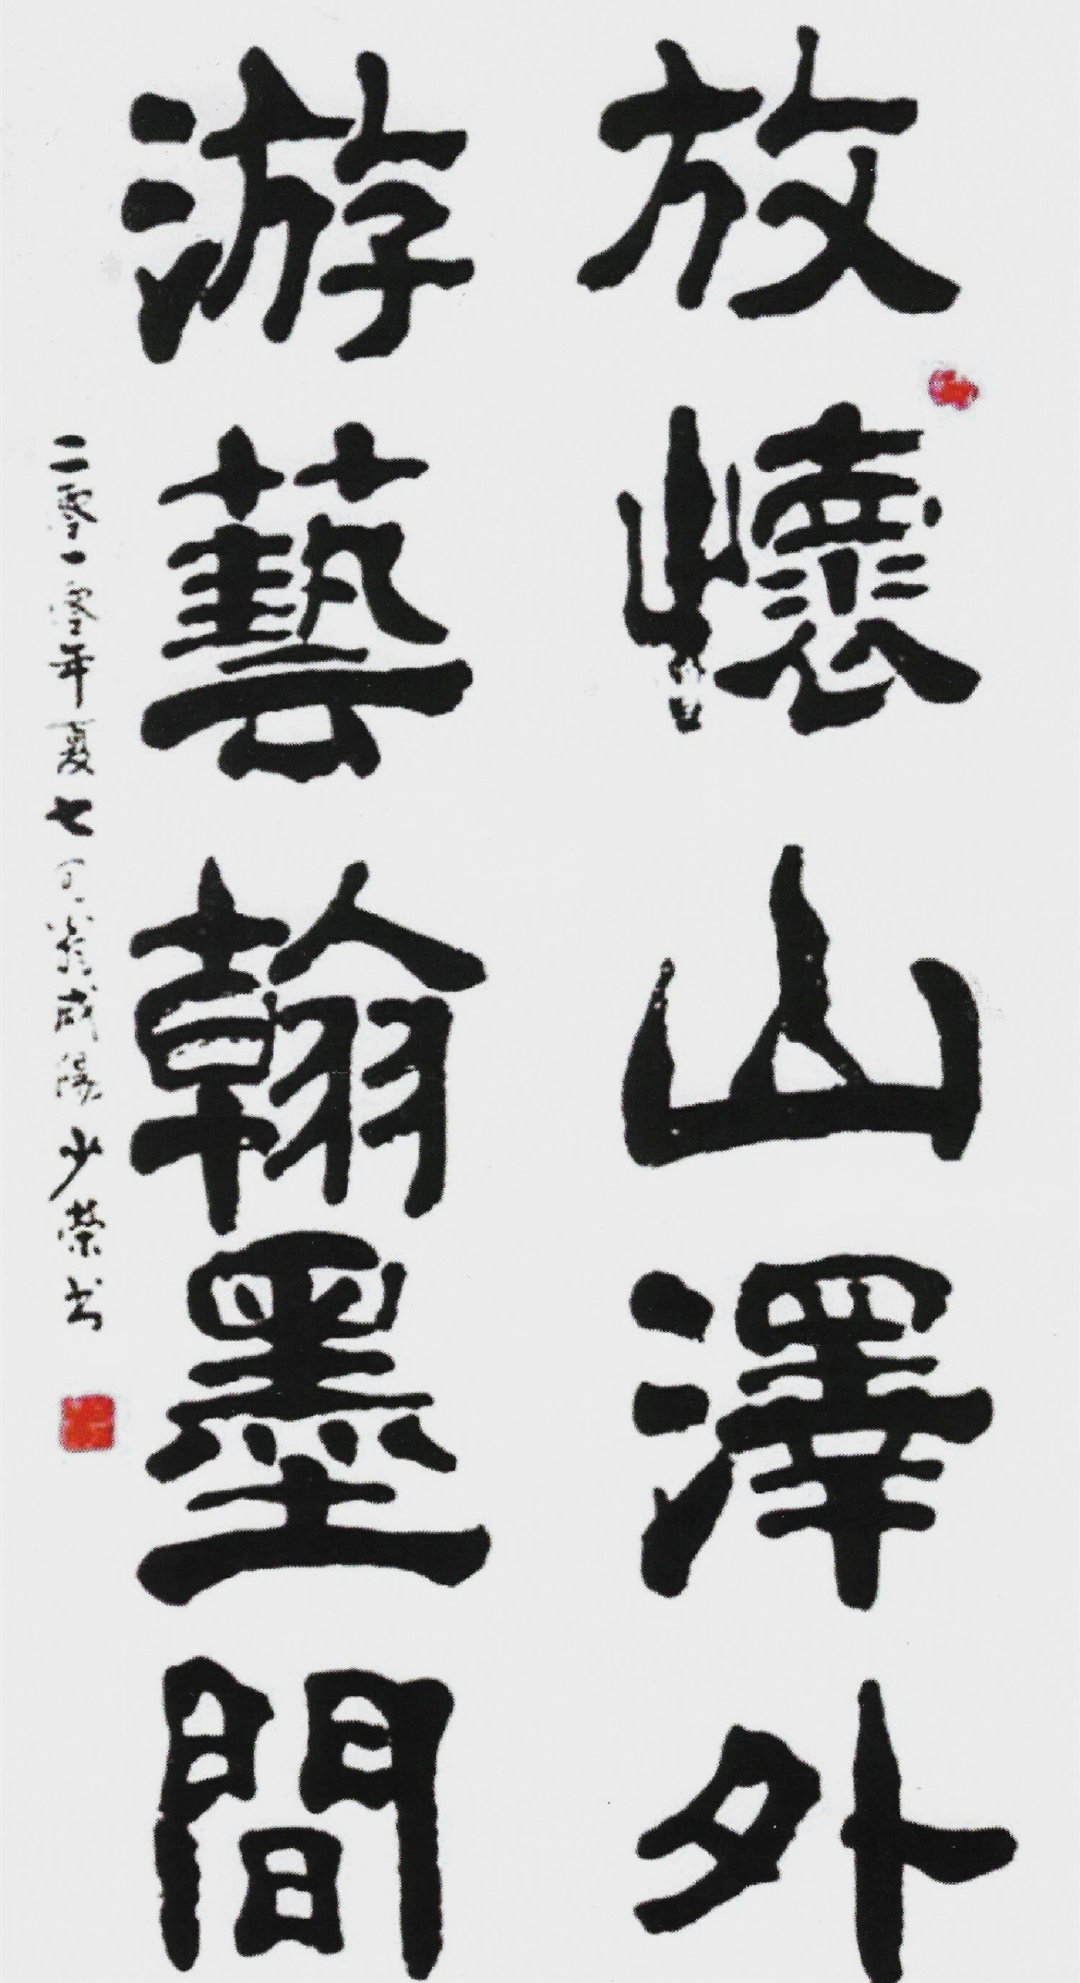 放懷山澤外
游藝翰墨間
二零一零年夏七咸陽少榮书